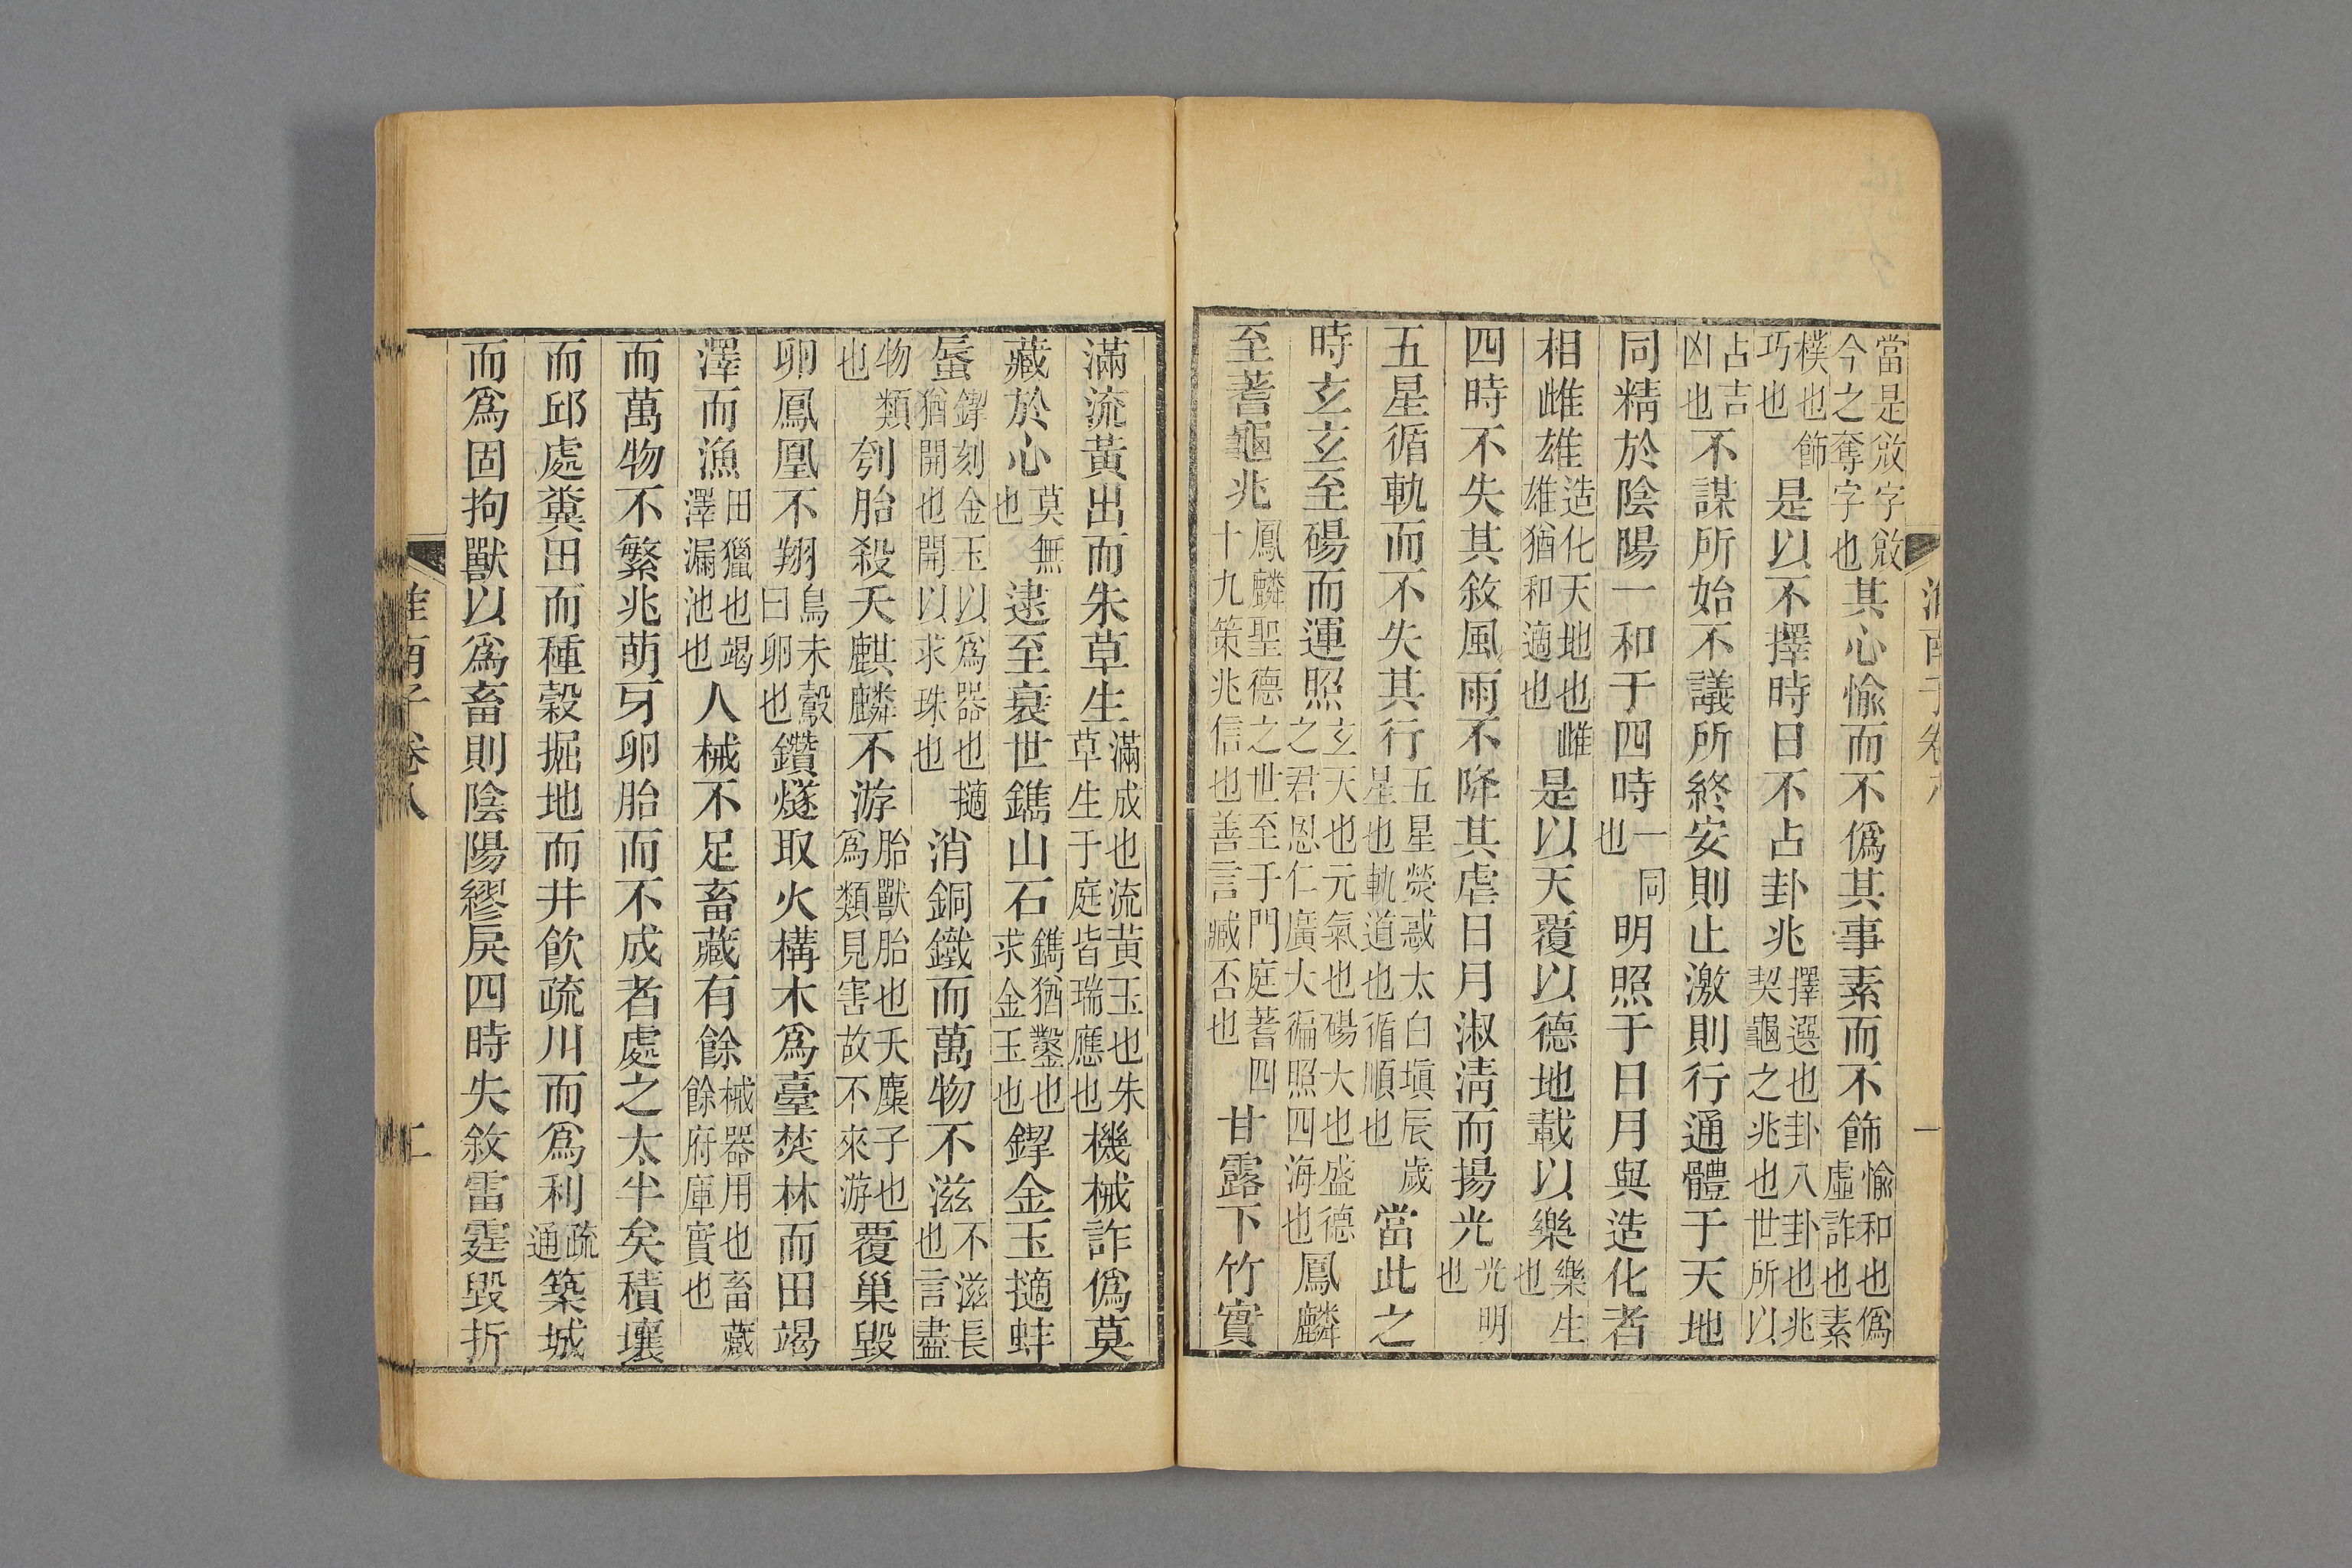 當是敓字敓今之奪字也其心愉而不僞其事素而不飾愉和也僞虛詐也素
樸也飾巧也是以不擇時日不占卦兆擇選也卦八卦也兆契龜之兆也世所以
占吉凶也不謀所始不議所終安則止激則行通體于天地
同精於陰陽一和于四時一同也明照于日月與造化者
相雌雄造化天地也雌雄猶和適也是以天覆以德地載以樂樂生也
四時不失其敘風雨不降其虐日月淑清而揚光光明也
五星循軌而不失其行五星熒惑太白塡辰歲星也軌道也循順也當此之
時玄玄至碭而運照玄天也元氣也碭大也盛德之君恩仁廣大徧照四海也鳳麟
至蓍龜兆鳳麟聖德之世至于門庭蓍四十九策兆信也善言臧否也甘露下竹實
滿流黃出而朱草生滿成也流黃玉也朱草生于庭皆瑞應也機械詐僞莫
藏於心莫無也逮至衰世鐫山石鐫猶鑿也求金玉也鍥金玉擿蚌
蜃鍥刻金玉以爲器也擿猶開也開以求珠也消銅鐵而萬物不滋不滋長也言盡
物類也刳胎殺夭麒麟不游胎獸胎也夭麋子也爲類見害故不來游覆巢毀
卵鳳凰不翔鳥未鷇曰卵也鑽燧取火構木爲臺焚林而田竭
澤而漁田獵也竭澤漏池也人械不足畜藏有餘械器用也畜藏餘府庫實也
而萬物不繁兆萌牙卵胎而不成者處之太半矣積壤
而邱處糞田而種穀掘地而井飮疏川而爲利疏通築城
而爲固拘獸以爲畜則陰陽繆戾四時失敘雷霆毀折
淮南子卷八 二